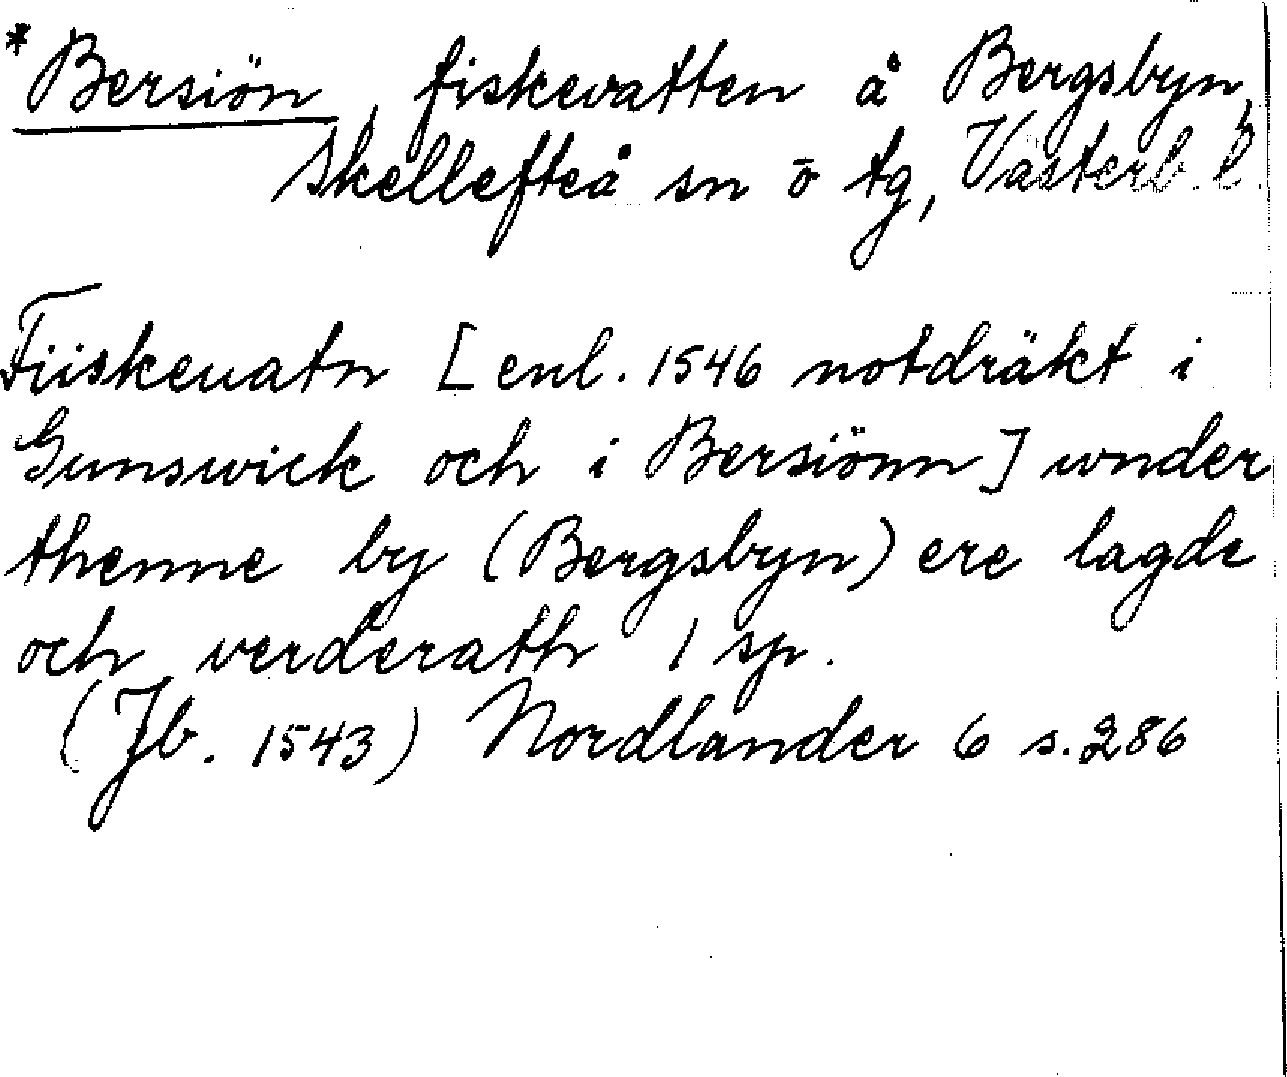 *Bersiön, fiskevatten å Bergsbyn,
Skellefteå sn o tg, Västerb. l.
Fiiskeuatn [enl. 1546 notdräkt i
Gunswick och i Bersiönn] wnder
thenne by (Bergsbyn) ere lagde
och verderath 1 sp.
(Jb. 1543) Nordlander 6 s. 286